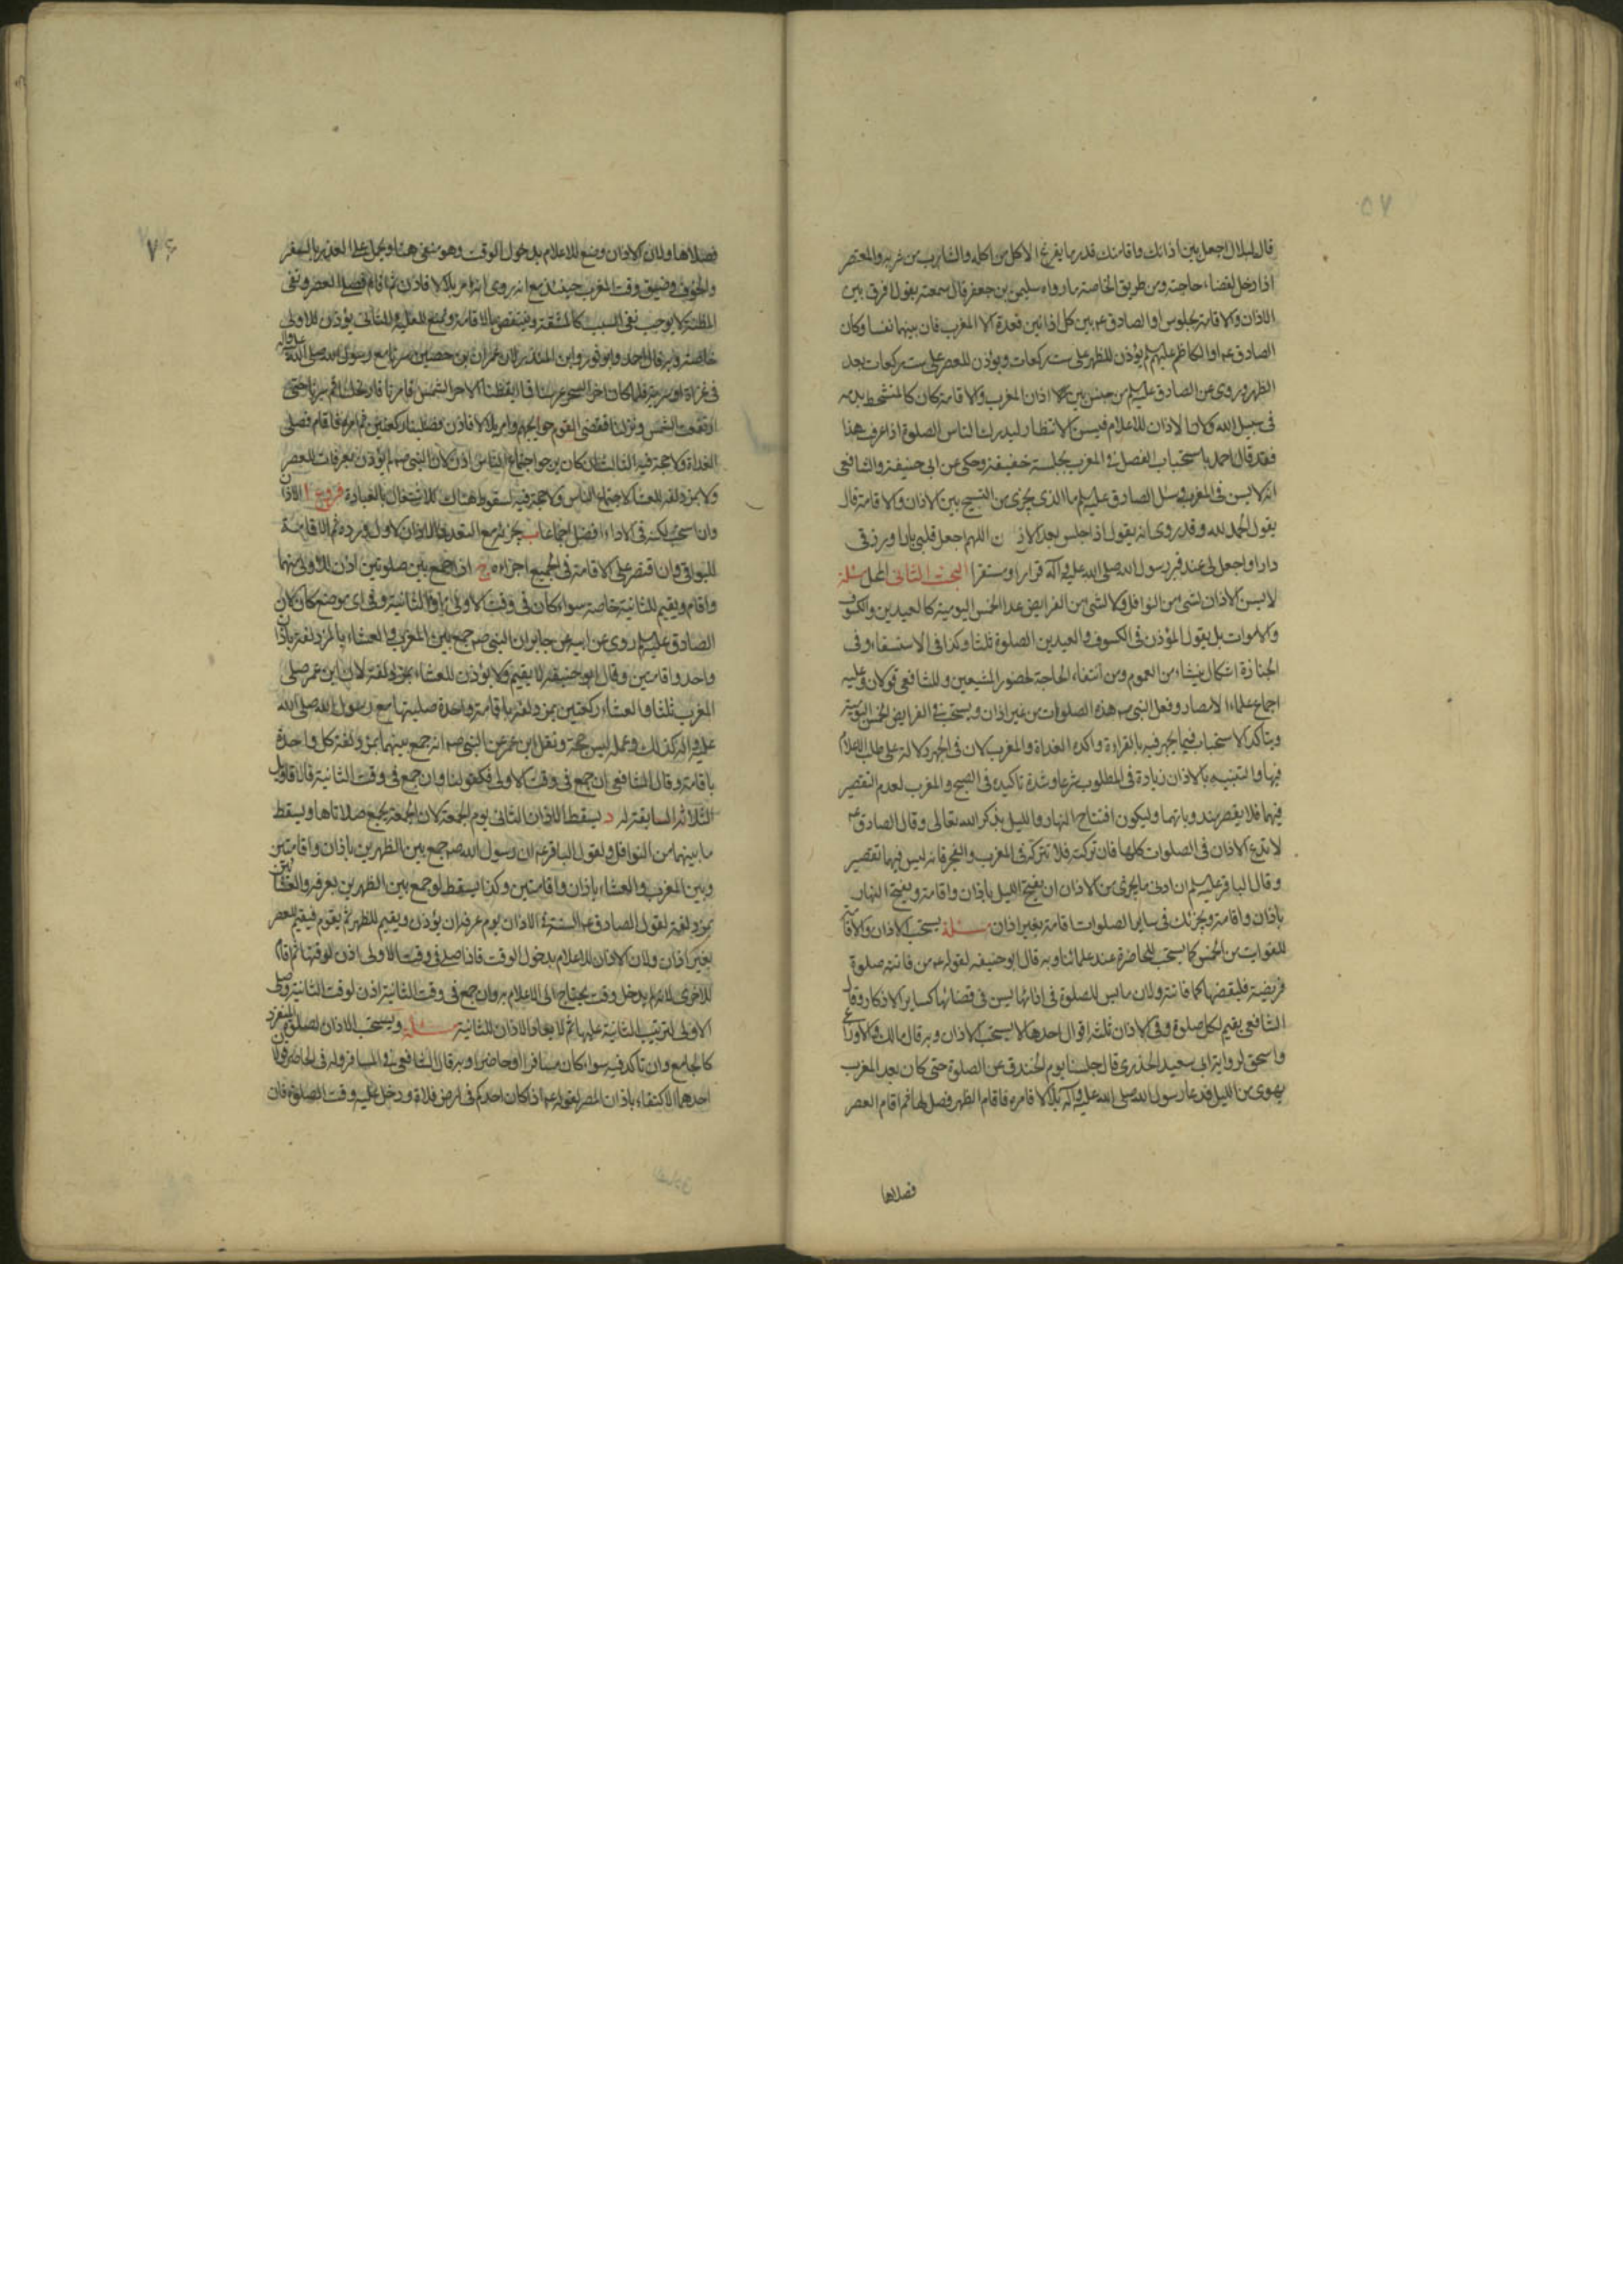 ٥٧
قال لبلال اجعل بين اذانك واقامتك قدر ما يفرغ الاكل من اكله والشارب من شربه والمعتصر
اذا دخل لقضاء حاجته ومن طريق الخاصة ما رواه سليمن بن جعفر قال سمعته يقول افرق بين
الاذان والاقامة بجلوس او الصادق عه بين كل اذانين قعدة الا المغرب فان بينهما نفسا وكان
الصادق عه او الكاظم عليهم يؤذن للظهر على ست ركعات ويؤذن للعصر على ست ركعات بعد
الظهر وروى عن الصادق عليه السلم من جلس بين اذان المغرب والاقامة كان كالمتشحط بدمه
فى سبيل الله ولان الاذان للاعلام فيسن الانتظار ليدرك الناس الصلوة اذا عرفت هذا
فقد قال احمد باستحباب الفصل فى المغرب بجلسة خفيفة وحكى عن ابى حنيفة والشافعى
انه لا يسن فى المغرب وسئل الصادق عليه السلم ما الذى يجزى من التسبيح بين الاذان والاقامة قال
يقول الحمد لله وقد روى انه يقول اذا جلس بعد الاذ ن اللهم اجعل قلبى بارا ورزقى
دارا واجعل لى عند قبر رسول الله صلى الله عليه وآله قرارا ومستقرا البحث الثانى المحل مسئلة
لا يسن الاذان لشئ من النوافل ولا لشئ من الفرايض عدا الخمس اليومية كالعيدين والكسوف
والاموات بل يقول المؤذن فى الكسوف والعيدين الصلوة ثلثا وكذا فى الاستسقاء وفى
الجنازة اشكال ينشاء من العموم ومن انتفاء الحاجة لحضور المشيعين وللشافعى قولان وعليه
اجماع علماء الامصار وفعل النبى صه هذه الصلوات من غير اذان ويستحب فى الفرايض الخمس اليومية
ويتاكد الاستحباب فيما يجهر فيه بالقراءة واكده الغداة والمغرب لان فى الجهر دلالة على طلب الاعلام
فيها والتنبيه بالاذان زيادة فى المطلوب شرعا وشدة تاكيده فى الصبح والمغرب لعدم التقصير
فيهما فلا يقصر مندوباتهما وليكون افتتاح النهار والليل بذكر الله تعالى وقال الصادق عه
لا تدع الاذان فى الصلوات كلها فان تركته فلا تتركه فى المغرب والفجر فانه ليس فيهما تقصير
وقال الباقر عليه السلم ان ادنى ما يجزى من الاذان ان يفتح الليل باذان واقامة ويفتح النهار
باذان واقامة ويجزئك فى ساير الصلوات اقامة بغير اذان مسئلة يستحب الاذان والاقامة
للفوايت من الخمس كما يستحب للحاضرة عند علمائنا وبه قال ابو حنيفه لقوله عه من فاتته صلوة
فريضة فليقضها كما فاتته ولان ما سن للصلوة فى ادائها يسن فى قضائها كساير الاذكار وقال
الشافعى يقيم لكل صلوة وفى الاذان ثلثة اقوال احدها لا يستحب الاذان وبه قال مالك والاوزاعى
واسحق لرواية ابى سعيد الخدرى قال جلسنا يوم الخندق عن الصلوة حتى كان بعد المغرب
بهوى من الليل فدعا رسول الله صلى الله عليه وآله بلالا فامره فاقام الظهر فصلاها ثم اقام العصر
فصلاها
٧٤
فصلاها ولان الاذان وضع للاعلام بدخول الوقت وهو منفى هنا ويحمل على العذر بالسفر
والخوف وضيق وقت المغرب حينئذ مع انه روى انه امر بلالا فاذن ثم اقام فصلى العصر ونفى
المظنة لا يوجب نفى السبب كالمشقة وينتقض بالاقامة ونمنع العلية والثانى يؤذن للاولى
خاصة وبه قال احمد وابو ثور وابن المنذر لان عمران بن حصين سرنا مع رسول الله صلى الله عليه وآله
فى غزاة او سرية فلما كان اخر السحر عرسنا فما ايقظنا الا حر الشمس فامرنا فارتحلنا ثم سرنا حتى
ارتفعت الشمس ونزلنا فقضى القوم حوايجهم وامر بلالا فاذن فصلينا ركعتين ثم امره فاقام فصلى
الغداة ولا حجة فيه الثالث ان كان يرجوا اجتماع الناس اذن لان النبى صه لم يؤذن بعرفات للعصر
ولا بمزدلفة للعشاء لاجتماع الناس ولا حجة فيه لسقوط هناك للاشتغال بالعبادة فروع ا الاذان
وان استحب لكنه فى الاداء افضل اجماعا ب يجزئه مع التعدد الاذان لاول ورده ثم الاقامة
للبواقى وان اقتصر على الاقامة فى الجميع اجزاءه ج اذا جمع بين صلوتين اذن للاولى منهما
واقام ويقيم للثانية خاصة سواء كان فى وقت الاولى او الثانية وفى اى موضع كان لان
الصادق عليه السلم روى عن ابيه عن جابر ان النبى صه جمع بين المغرب والعشاء بالمزدلفة باذان
واحد واقامتين وقال ابو حنيفه لا يقيم ولا يؤذن للعشاء بمزدلفة لان ابن عمر صلى
المغرب ثلثا والعشاء ركعتين بمزدلفة باقامة واحدة صليتها مع رسول الله صلى الله
عليه واله كذلك وعمله ليس حجة ونقل ابن عمر عن النبى صه انه جمع بينهما بمزدلفة كل واحدة
باقامة وقال الشافعى ان جمع فى وقت الاولى فكقولنا وان جمع فى وقت الثانية فالاقاويل
الثلاثة السابقة له د يسقط الاذان الثانى يوم الجمعة لان الجمعة يجمع صلاتاها ويسقط
ما بينهما من النوافل ولقول الباقر عه ان رسول الله صه جمع بين الظهرين باذان واقامتين
وبين المغرب والعشاء باذان واقامتين وكذا يسقط لو جمع بين الظهرين بعرفه والعشائين
بمزدلفة لقول الصادق عه السنة فى الاذان يوم عرفه ان يؤذن ويقيم للظهر ثم يقوم فيقيم للعصر
بغير اذان ولان الاذان للاعلام بدخول الوقت فاذا صلى فى وقت الاولى اذن لوقتها ثم اقام
للاخرى لانه لم يدخل وقت يحتاج الى الاعلام به وان جمع فى وقت الثانية اذن لوقت الثانية وصلى
الاولى لترتيب الثانية عليها ثم لا يعاد الاذان للثانية مسئلة ويستحب الاذان لصلوة المنفرد
كالجامع وان تاكد فيه سواء كان مسافرا او حاضرا وبه قال الشافعى فى المسافر وله فى الحاضر قولان
احدهما الاكتفاء باذان المصر لقوله عه اذا كان احدكم فى ارض فلاة ودخل عليه وقت الصلوة فان